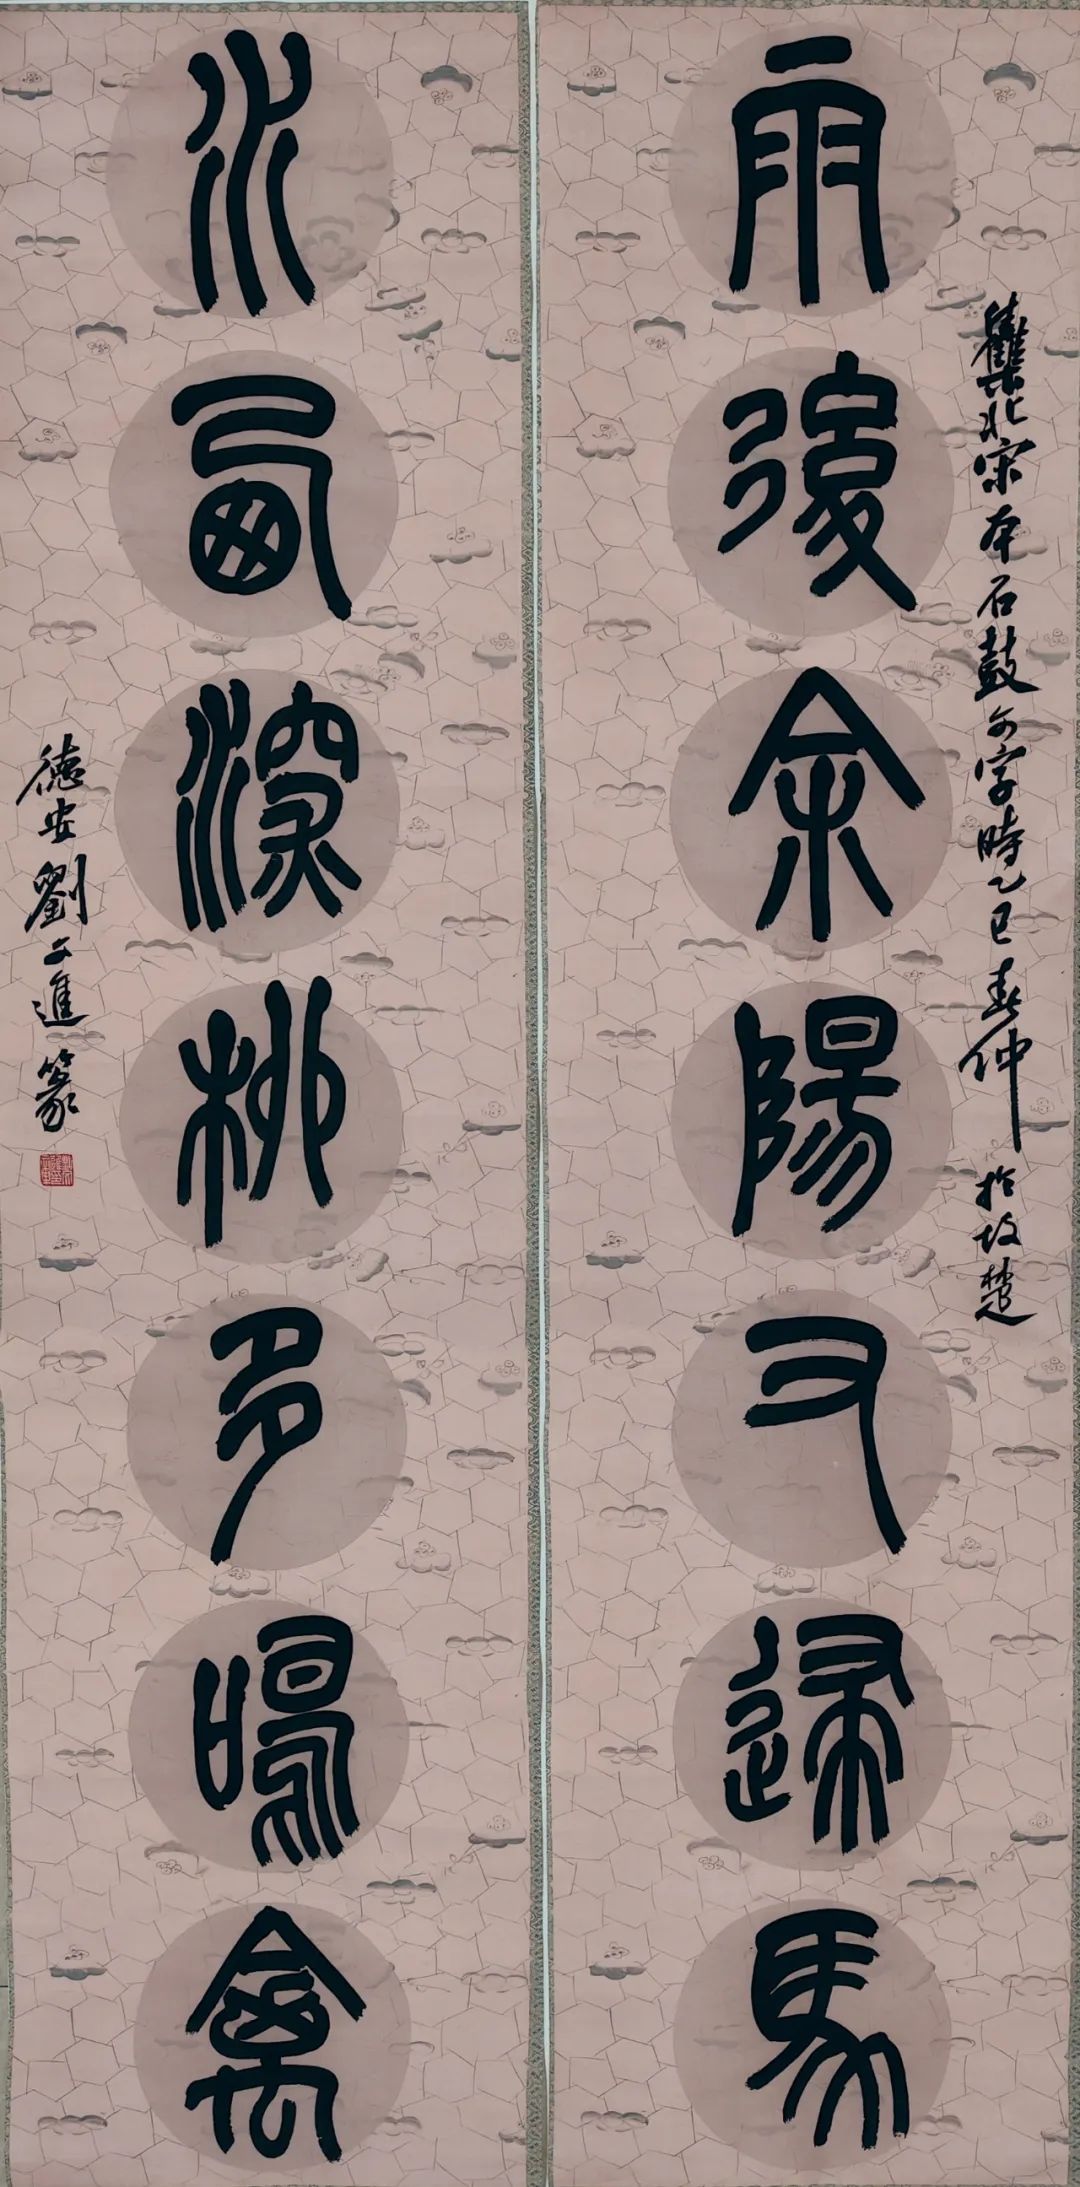 雨後余陽又歸馬
雧北宋本石鼓文字時乙巳春仲於故楚
水西深柳多鳴禽
德安劉文進篆